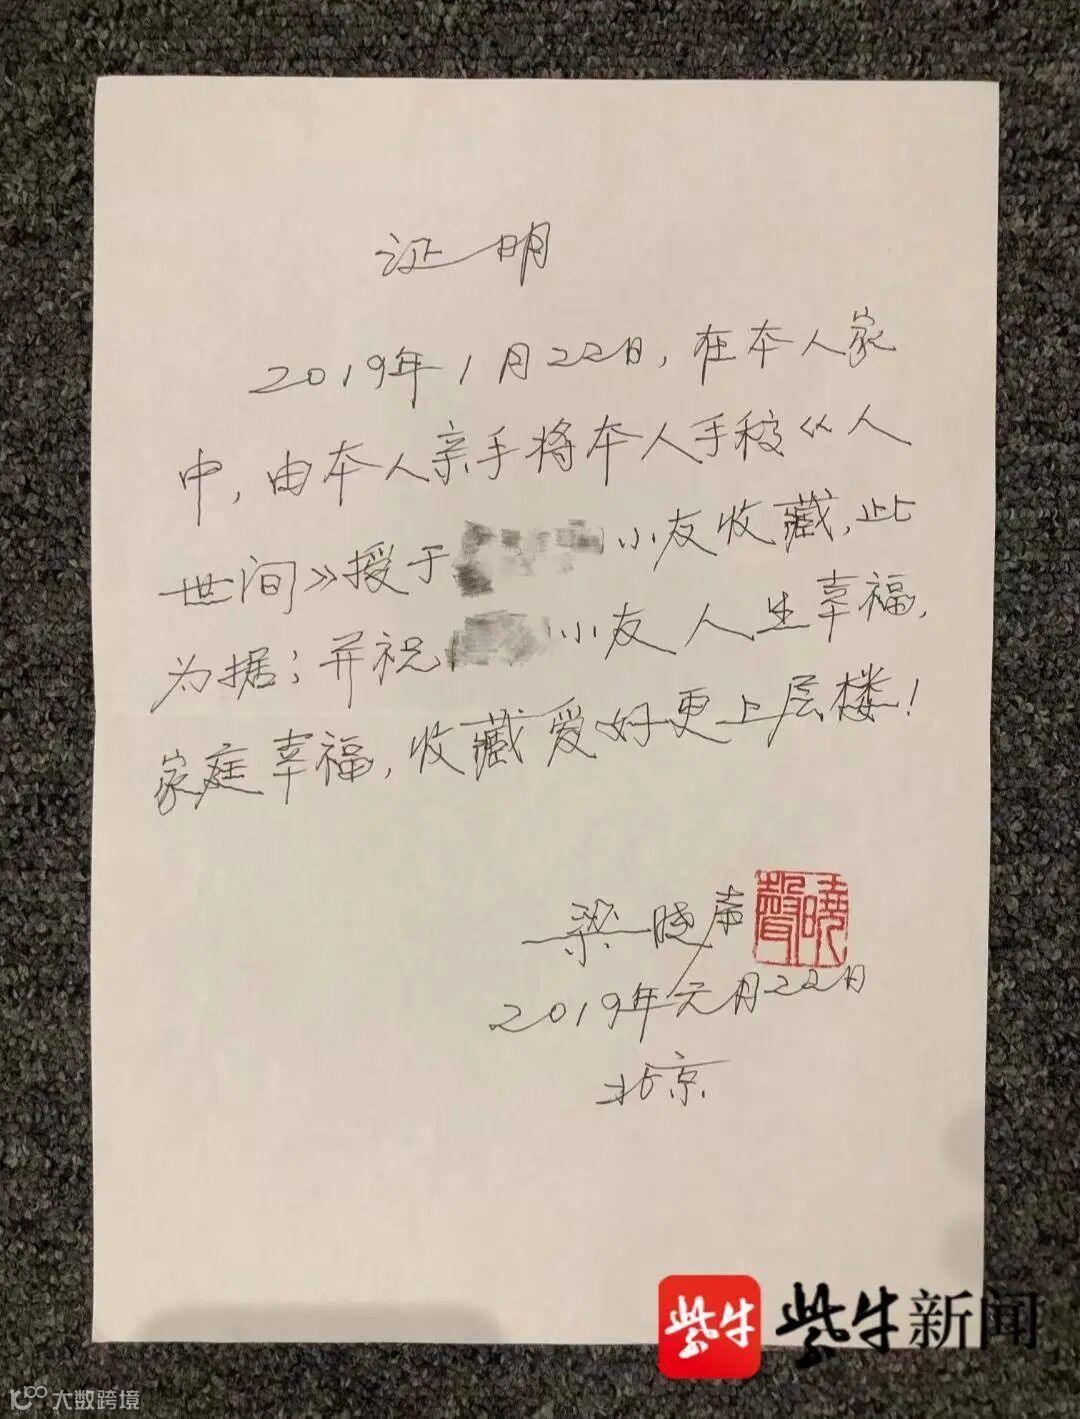 证明
2019年1月22日，在本人家
中，由本人亲手将本人手稿《人
世间》授于小友收藏，此
为据；并祝小友人生幸福，
家庭幸福，收藏爱好更上层楼！
梁晓声
曉聲
2019年元月22日
北京
紫牛 紫牛新闻
大数跨境